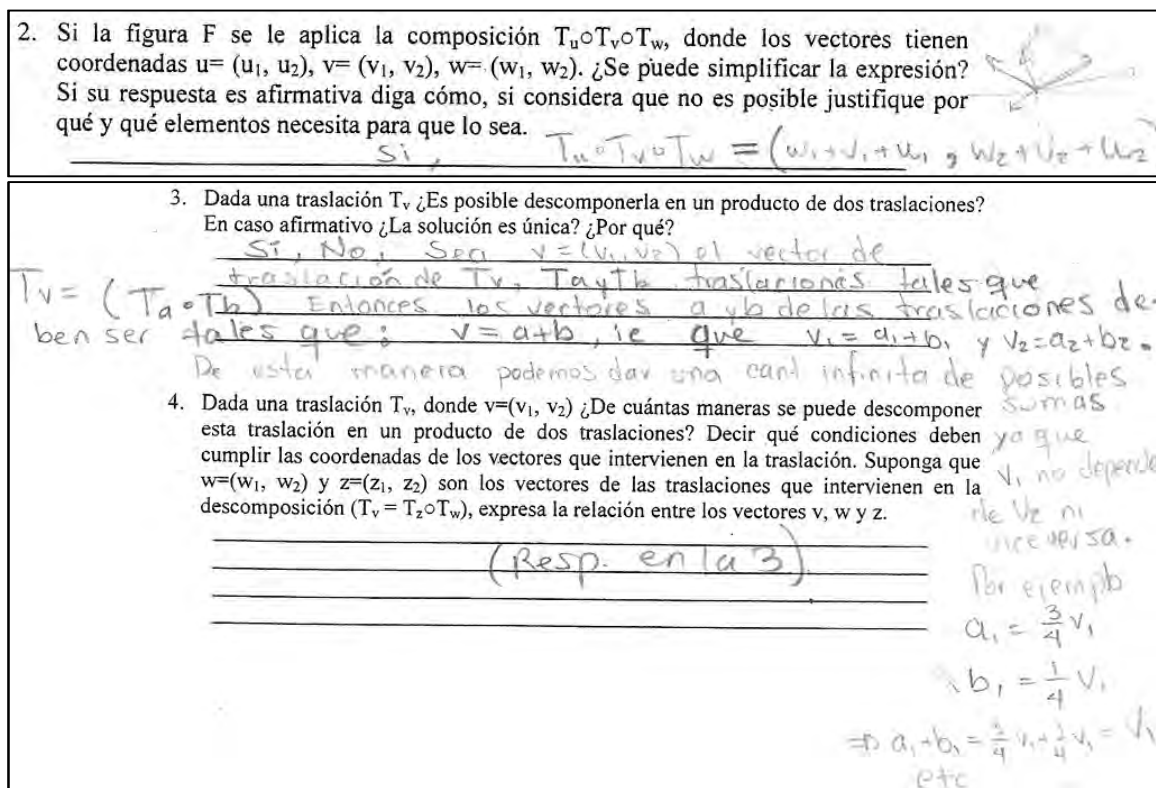 2. Si la figura F se le aplica la composición TuoTvoTw, donde los vectores tienen
coordenadas u= (u1, u2), v= (v1, v2), w= (w1, w2). ¿Se puede simplificar la expresión?
Si su respuesta es afirmativa diga cómo, si considera que no es posible justifique por
qué y qué elementos necesita para que lo sea.
Si, Tu∘Tv∘Tw = (w1+v1+u1, w2+v2+u2)
3. Dada una traslación Tv ¿Es posible descomponerla en un producto de dos traslaciones?
En caso afirmativo ¿La solución es única? ¿Por qué?
Sí, No, Sea v=(v1, v2) el vector de
traslación de Tv, Ta y Tb traslaciones tales que
Tv = (Ta∘Tb) Entonces los vectores a y b de las traslaciones de-
ben ser tales que: v=a+b, ie que v1=a1+b1 y v2=a2+b2.
De esta manera podemos dar una cant infinita de posibles
sumas
ya que
v1 no depende
de v2 ni
viceversa.
Por ejemplo
a1 = 3/4 v1
b1 = 1/4 v1
⇒ a1+b1 = 3/4 v1 + 1/4 v1 = v1
etc
4. Dada una traslación Tv, donde v=(v1, v2) ¿De cuántas maneras se puede descomponer
esta traslación en un producto de dos traslaciones? Decir qué condiciones deben
cumplir las coordenadas de los vectores que intervienen en la traslación. Suponga que
w=(w1, w2) y z=(z1, z2) son los vectores de las traslaciones que intervienen en la
descomposición (Tv = TzoTw), expresa la relación entre los vectores v, w y z.
(Resp. en la 3)